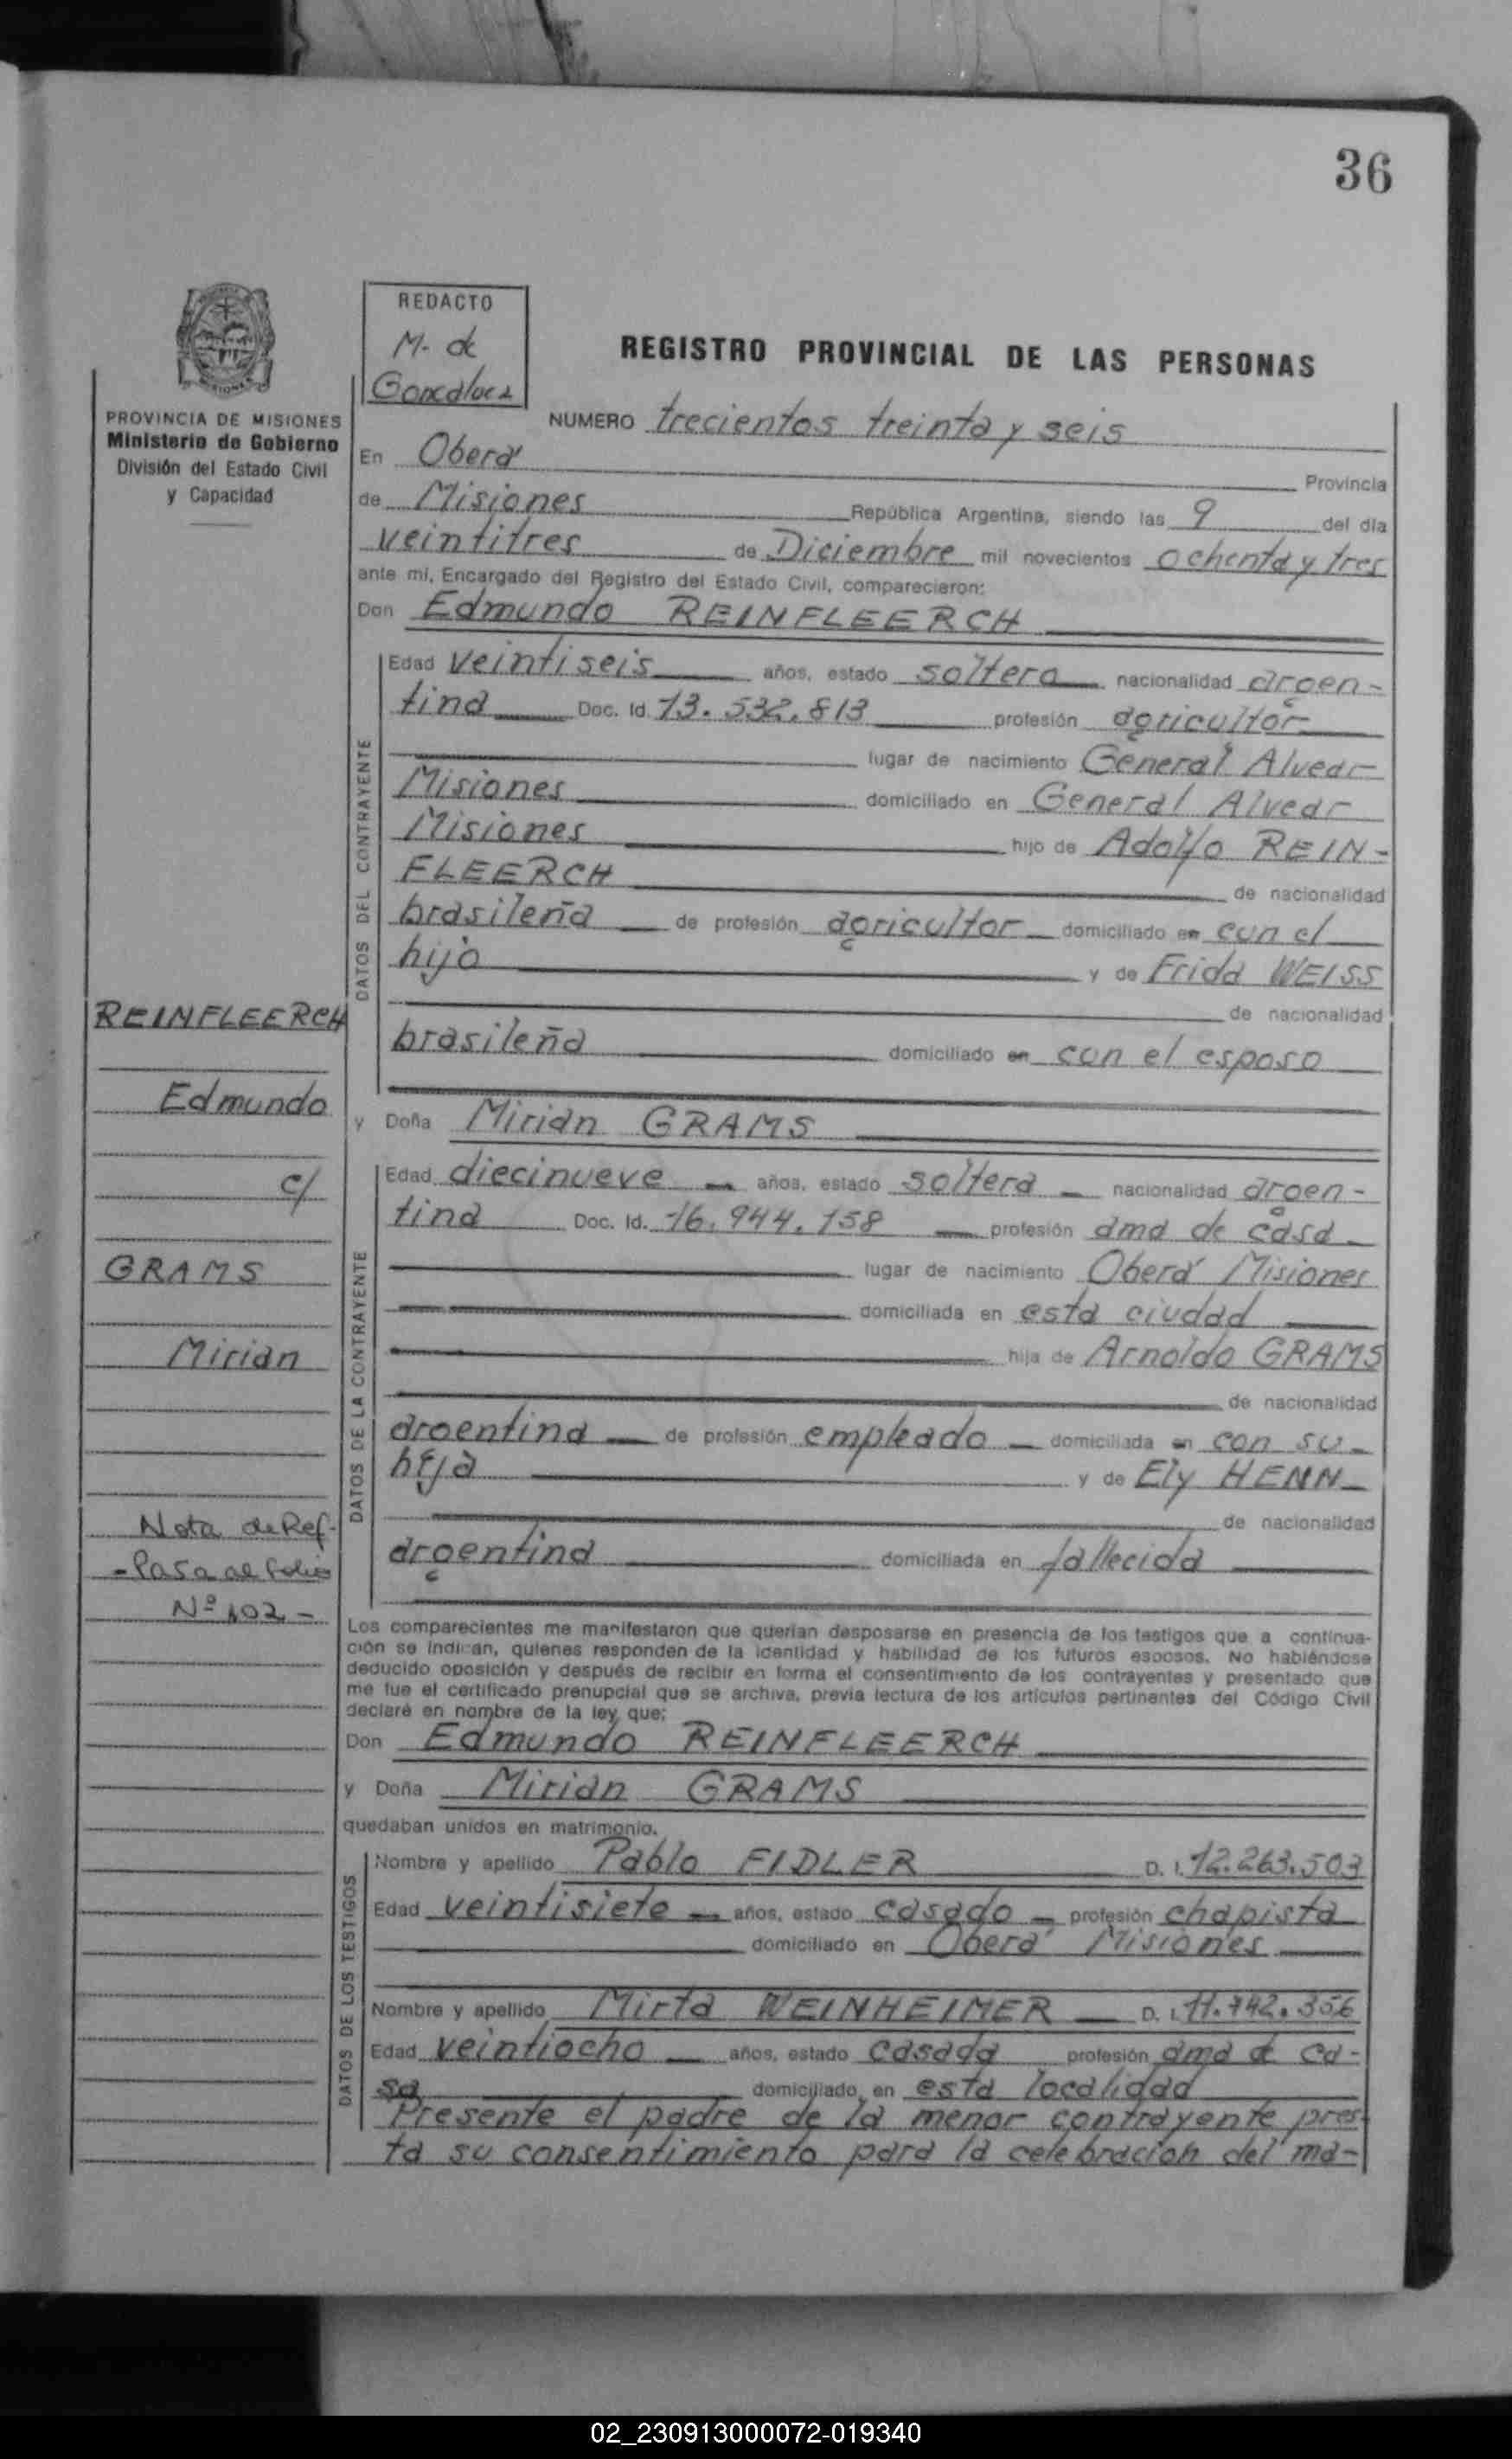 36
REDACTO
M. de
Goncalves
REGISTRO PROVINCIAL DE LAS PERSONAS
PROVINCIA DE MISIONES
Ministerio de Gobierno
División del Estado Civil
y Capacidad
NUMERO trecientos treinta y seis
En Oberá Provincia
de Misiones República Argentina, siendo las 9 del día
veintitres de Diciembre mil novecientos ochenta y tres
ante mi, Encargado del Registro del Estado Civil, comparecieron:
Don Edmundo REINFLEERCH
DATOS DEL CONTRAYENTE
Edad veintiseis años, estado soltero nacionalidad argen-
tina Doc. Id. 13.532.813 profesión agricultor
lugar de nacimiento General Alvear
Misiones domiciliado en General Alvear
Misiones hijo de Adolfo REIN-
FLEERCH de nacionalidad
brasileña de profesión agricultor domiciliado en con el
hijo y de Frida WEISS
de nacionalidad
brasileña domiciliado en con el esposo
y Doña Mirian GRAMS
DATOS DE LA CONTRAYENTE
Edad diecinueve años, estado soltera nacionalidad argen-
tina Doc. Id. 16.944.158 profesión ama de casa
lugar de nacimiento Oberá Misiones
domiciliada en esta ciudad
hija de Arnoldo GRAMS
de nacionalidad
argentina de profesión empleado domiciliada en con su
hija y de Ely HENN
de nacionalidad
argentina domiciliada en fallecida
REINFLEERCH
Edmundo
c/
GRAMS
Mirian
Nota de Ref-
-Pasa al folio
Nº 102-
Los comparecientes me manifestaron que querían desposarse en presencia de los testigos que a continua-
ción se indican, quienes responden de la identidad y habilidad de los futuros esposos. No habiéndose
deducido oposición y después de recibir en forma el consentimiento de los contrayentes y presentado que
me fue el certificado prenupcial que se archiva, previa lectura de los artículos pertinentes del Código Civil
declaré en nombre de la ley, que:
Don Edmundo REINFLEERCH
y Doña Mirian GRAMS
quedaban unidos en matrimonio.
DATOS DE LOS TESTIGOS
Nombre y apellido Pablo FIDLER D. I. 12.263.503
Edad veintisiete años, estado casado profesión chapista
domiciliado en Oberá Misiones
Nombre y apellido Mirta WEINHEIMER D. I. 11.742.356
Edad veintiocho años, estado casada profesión ama de ca-
sa domiciliado en esta localidad
Presente el padre de la menor contrayente pres-
ta su consentimiento para la celebración del ma-
02_230913000072-019340